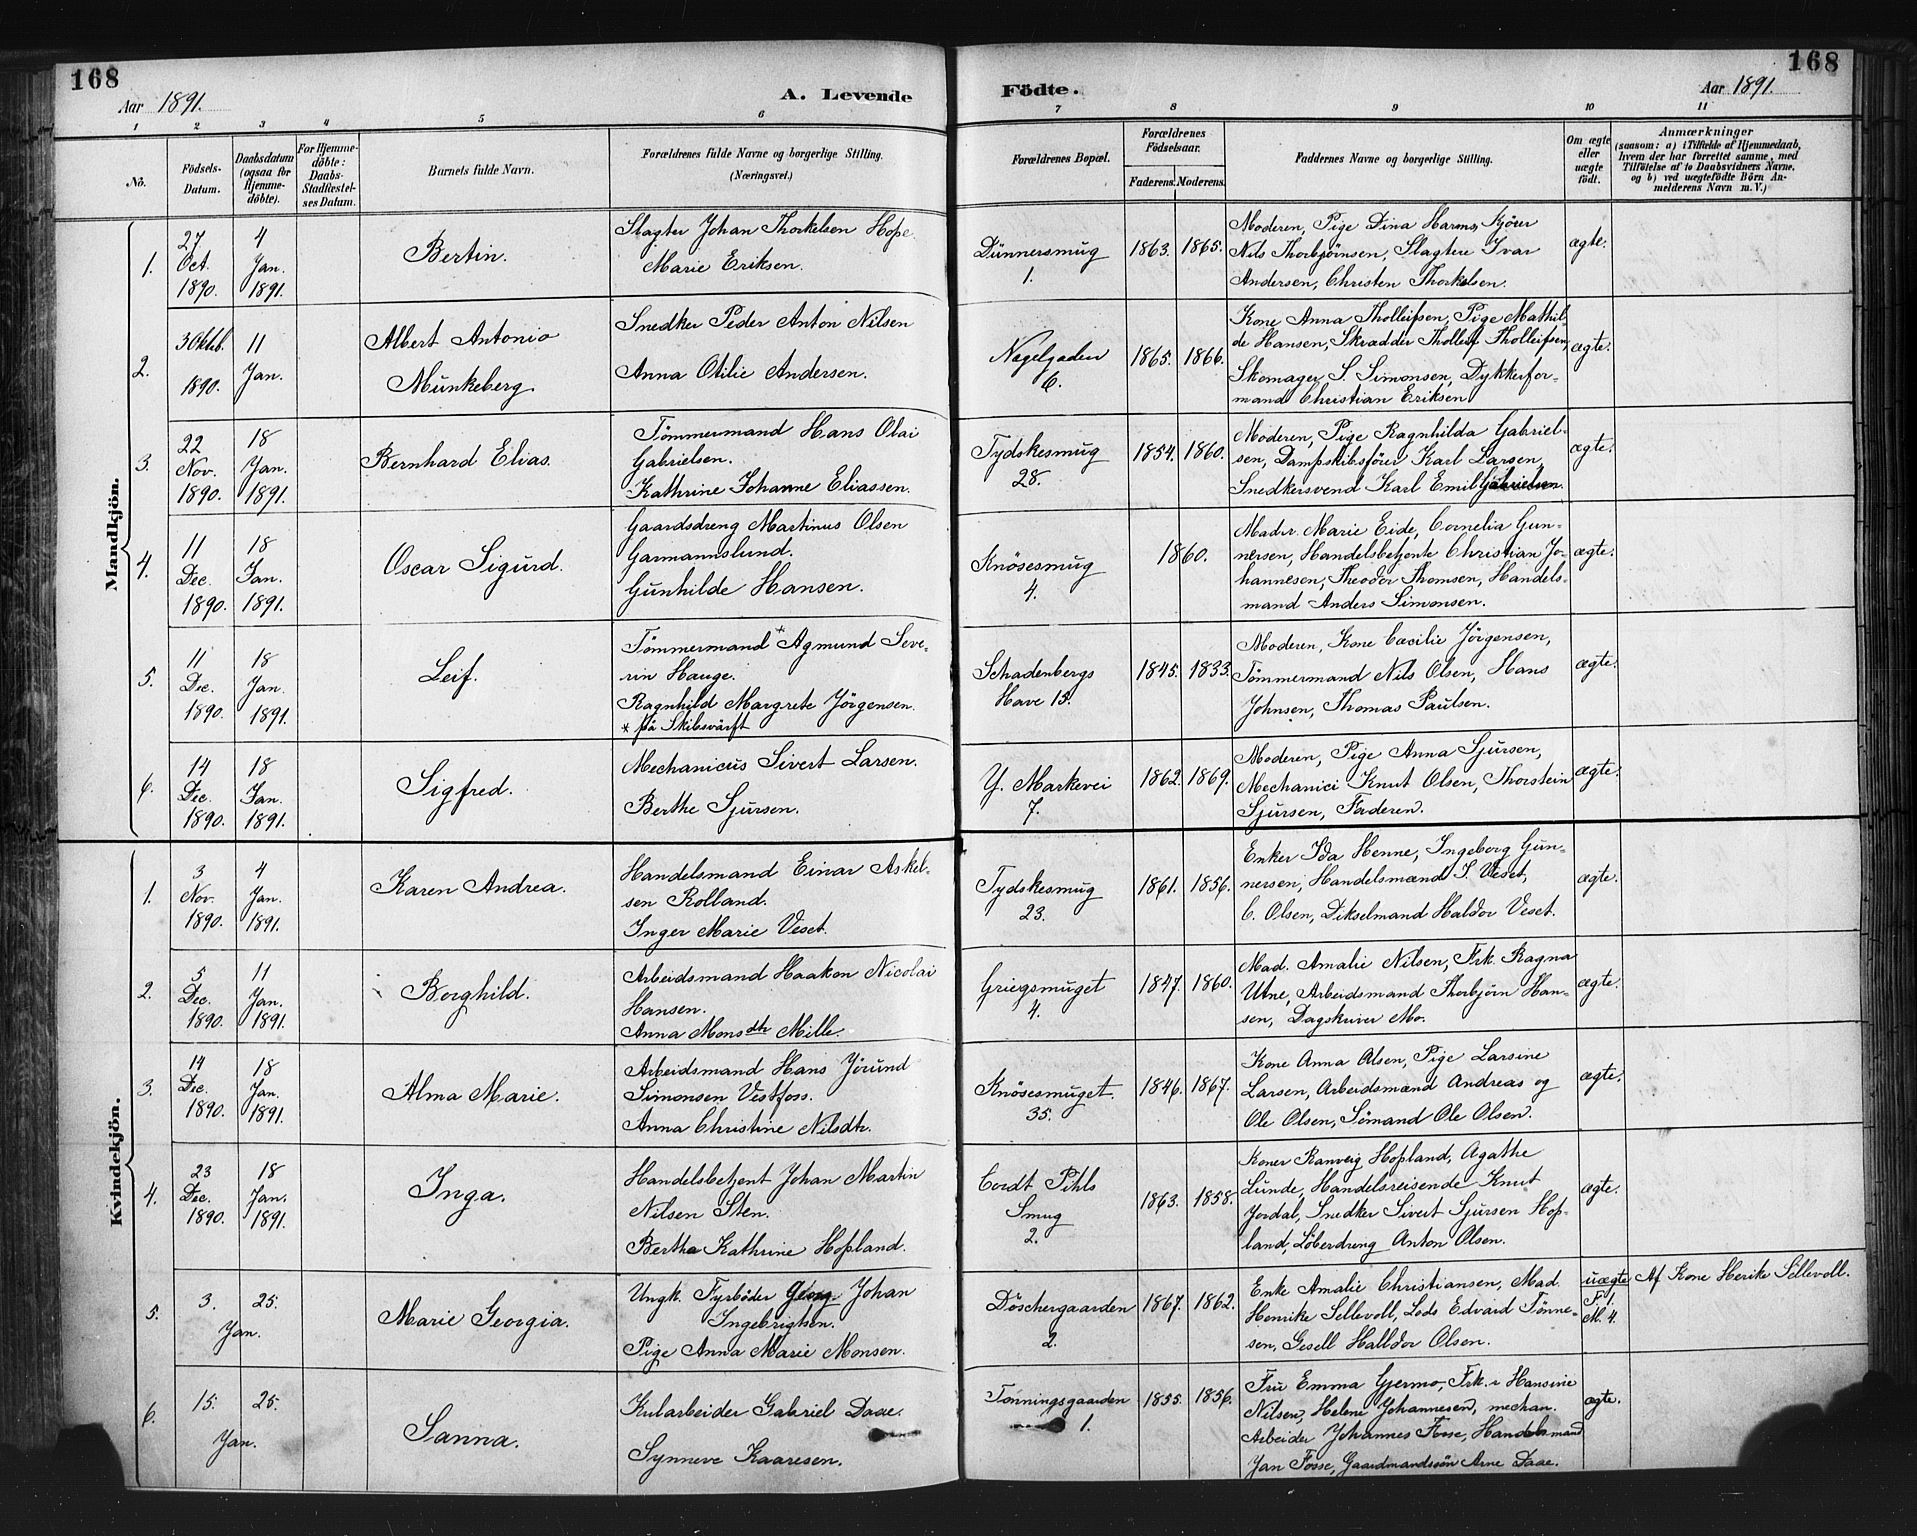 168
Aar 1891.
A. Levende
Födte.
Aar 1891.
168
1
2
3
4
5
6
7
8
9
10
11
No.
Födsels-
Datum.
Daabsdatum
(ogsaa for
Hjemme-
döbte).
For Hjemme-
döbte:
Daabs-
Stadfæstel-
ses Datum.
Barnets fulde Navn.
Forældrenes fulde Navne og borgerlige Stilling.
(Næringsvei.)
Forældrenes Bopæl.
Forældrenes
Födselsaar.
Faderens.
Moderens.
Faddernes Navne og borgerlige Stilling.
Om ægte
eller
uægte
födt.
Anmærkninger
(saasom: a) i Tilfælde af Hjemmedaab,
hvem der har forrettet samme, med
Tilföielse af to Daabsvidners Navne,
og b) ved uægtefödte Börn An-
melderens Navn m. V.)
Mandkjön.
1.
27
Oct.
1890.
4
Jan.
1891.
Bertin.
Slagter Johan Thorkelsen Hope.
Marie Eriksen.
Dünnersmug
1.
1863.
1865.
Moderen, Pige Dina Harms, Kjörer
Nils Thorbjörnsen, Slagtere Ivar
Andersen, Christen Thorkelsen.
ægte.
2.
3 Oktb.
1890.
11
Jan.
Albert Antonio
Munkeberg.
Snedker Peder Anton Nilsen
Anna Otilie Andersen.
Nagelgaden
6.
1865.
1866.
Kone Anna Tholleifsen, Pige Mathil-
de Hansen, Skrædder Tholleif Tholleifsen,
Skomager S. Simonsen, Dykkerfor-
mand Christian Eriksen
ægte.
3.
22
Nov.
1890.
18
Jan.
1891.
Bernhard Elias.
Tömmermand Hans Olai
Gabrielsen.
Kathrine Johanne Eliassen.
Tydskesmug
28.
1854.
1860.
Moderen, Pige Ragnhilda Gabriel-
sen, Dampskibsförer Karl Larsen,
Snedkersvend Karl Emil Gabrielsen.
ægte.
4.
11
Dec.
1890.
18
Jan.
1891.
Oscar Sigurd.
Gaardsdreng Martinus Olsen
Garmannslund.
Gunhilde Hansen.
Knösesmug
4.
1860.
Madr. Marie Eide, Cornelia Gun-
nersen, Handelsbetjente Christian Jo-
hannesen, Theodor Thomsen, Handels-
mand Anders Simonsen.
ægte.
5.
11
Dec.
1890.
18
Jan.
1891.
Leif.
Tömmermand * Agmund Seve-
rin Hauge.
Ragnhild Margrete Jörgensen.
* på Skibsværft
Schadenbergs
Have 15.
1845.
1833.
Moderen, Kone Cæcilie Jörgensen,
Tömmermand Nils Olsen, Hans
Johnsen, Thomas Paulsen.
ægte.
6.
14
Dec.
1890.
18
Jan.
1891.
Sigfred.
Mechanicus Sivert Larsen.
Berthe Sjursen.
Y. Markevei
7.
1862.
1869.
Moderen, Pige Anna Sjursen,
Mechanici Knut Olsen, Thorstein
Sjursen, Faderen.
ægte.
Kvindekjön.
1.
3
Nov.
1890.
4
Jan.
1891.
Karen Andrea.
Handelsmand Einar Askel-
sen Rolland.
Inger Marie Veset.
Tydskesmug
23.
1861.
1856.
Enker Ida Henne, Ingeborg Gun-
nersen, Handelsmænd I. Veset,
C. Olsen, Dikselmand Haldor Veset.
ægte.
2.
5
Dec.
1890.
11
Jan.
1891.
Borghild.
Arbeidsmand Haakon Nicolai
Hansen.
Anna Monsdtr Mille.
Griegsmuget
4.
1847.
1860.
Mad. Amalie Nilsen, Frk. Ragna
Utne, Arbeidsmand Thorbjörn Han-
sen, Dagskriver Mo.
ægte.
3.
14
Dec.
1890.
18
Jan.
1891.
Alma Marie.
Arbeidsmand Hans Jörund
Simonsen Vestfoss.
Anna Christine Nilsdtr.
Knösesmuget.
35.
1846.
1867.
Kone Anna Olsen, Pige Larsine
Larsen, Arbeidsmænd Andreas og
Ole Olsen, Sömand Ole Olsen.
ægte.
4.
23
Dec.
1890.
18
Jan.
1891.
Inga.
Handelsbetjent Johan Martin
Nilsen Sten.
Berthe Kathrine Hopland.
Cordt Pihls
Smug
2.
1863.
1858.
Koner Ranveig Hopland, Agathe
Lunde, Handelsreisende Knut
Jordal, Snedker Sivert Sjursen Hop-
land, Löberdreng Anton Olsen.
ægte.
5.
3.
Jan.
25.
Marie Georgia.
Ungk. Fyrböder Georg Johan
Ingebrigtsen.
Pige Anna Marie Monsen.
Döschergaarden
2.
1867.
1862.
Enke Amalie Christiansen, Mad.
Henrike Sellevoll, Lods Edvard Tönne-
sen, Gesell Halldor Olsen.
uægte
F. 1.
M. 4.
Af Kone Herike Sellevoll.
6.
15.
Jan.
25.
Sanna.
Kularbeider Gabriel Daae.
Synneve Kaaresen.
Tonningsgaarden
1.
1855.
1856.
Fru Emma Gjermo, Frk.r Hansine
Nilsen, Helene Johannesen, mechan.
Arbeider Johannes Fosse, Handelsmand
Jan Fosse, Gaardmandssön Arne Daae.
ægte.